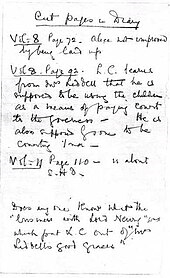 Cut Pages in Diary
Vol: 8 Page 72 - Alice not improved
by being laid up
Vol: 8 Page 92. L.C. learns
from Mrs Liddell that he is
supposed to be using the children
as a means of paying court
to the governess - He is
also supposed to be
courting Ina -
Vol: 11 Page 110 - is about
E.H.D.
Does any one know what the
"business with Lord Newry" was
which put L.C. out of Mrs
Liddell's good graces?